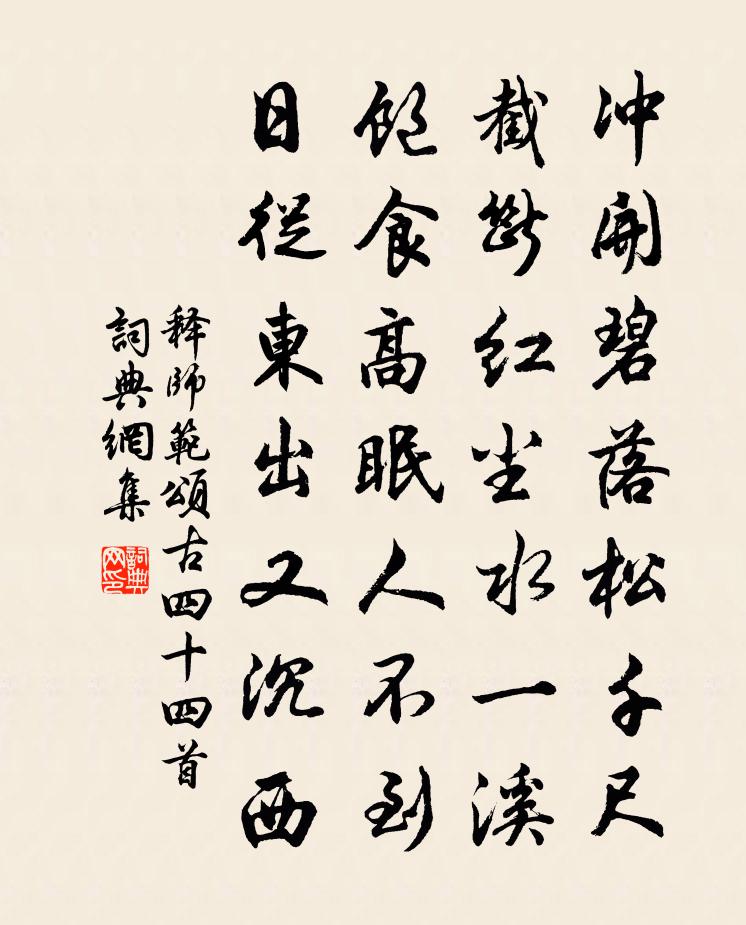 冲開碧落松千尺
截斷紅塵水一溪
飽食高眠人不到
日從東出又沉西
释師範頌古四十四首
詞典網集
詞典网印